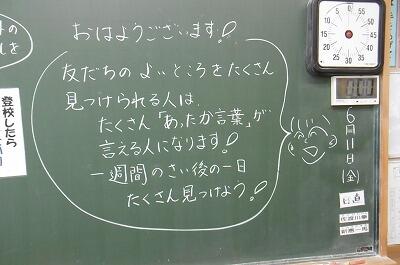 おはようございます!
友だちの よいところをたくさん
見つけられる人は、
たくさん「あったか言葉」が
言える人になります!
一週間のさい後の一日
たくさん見つけよう!
登校したら
6月11日(金)
日直